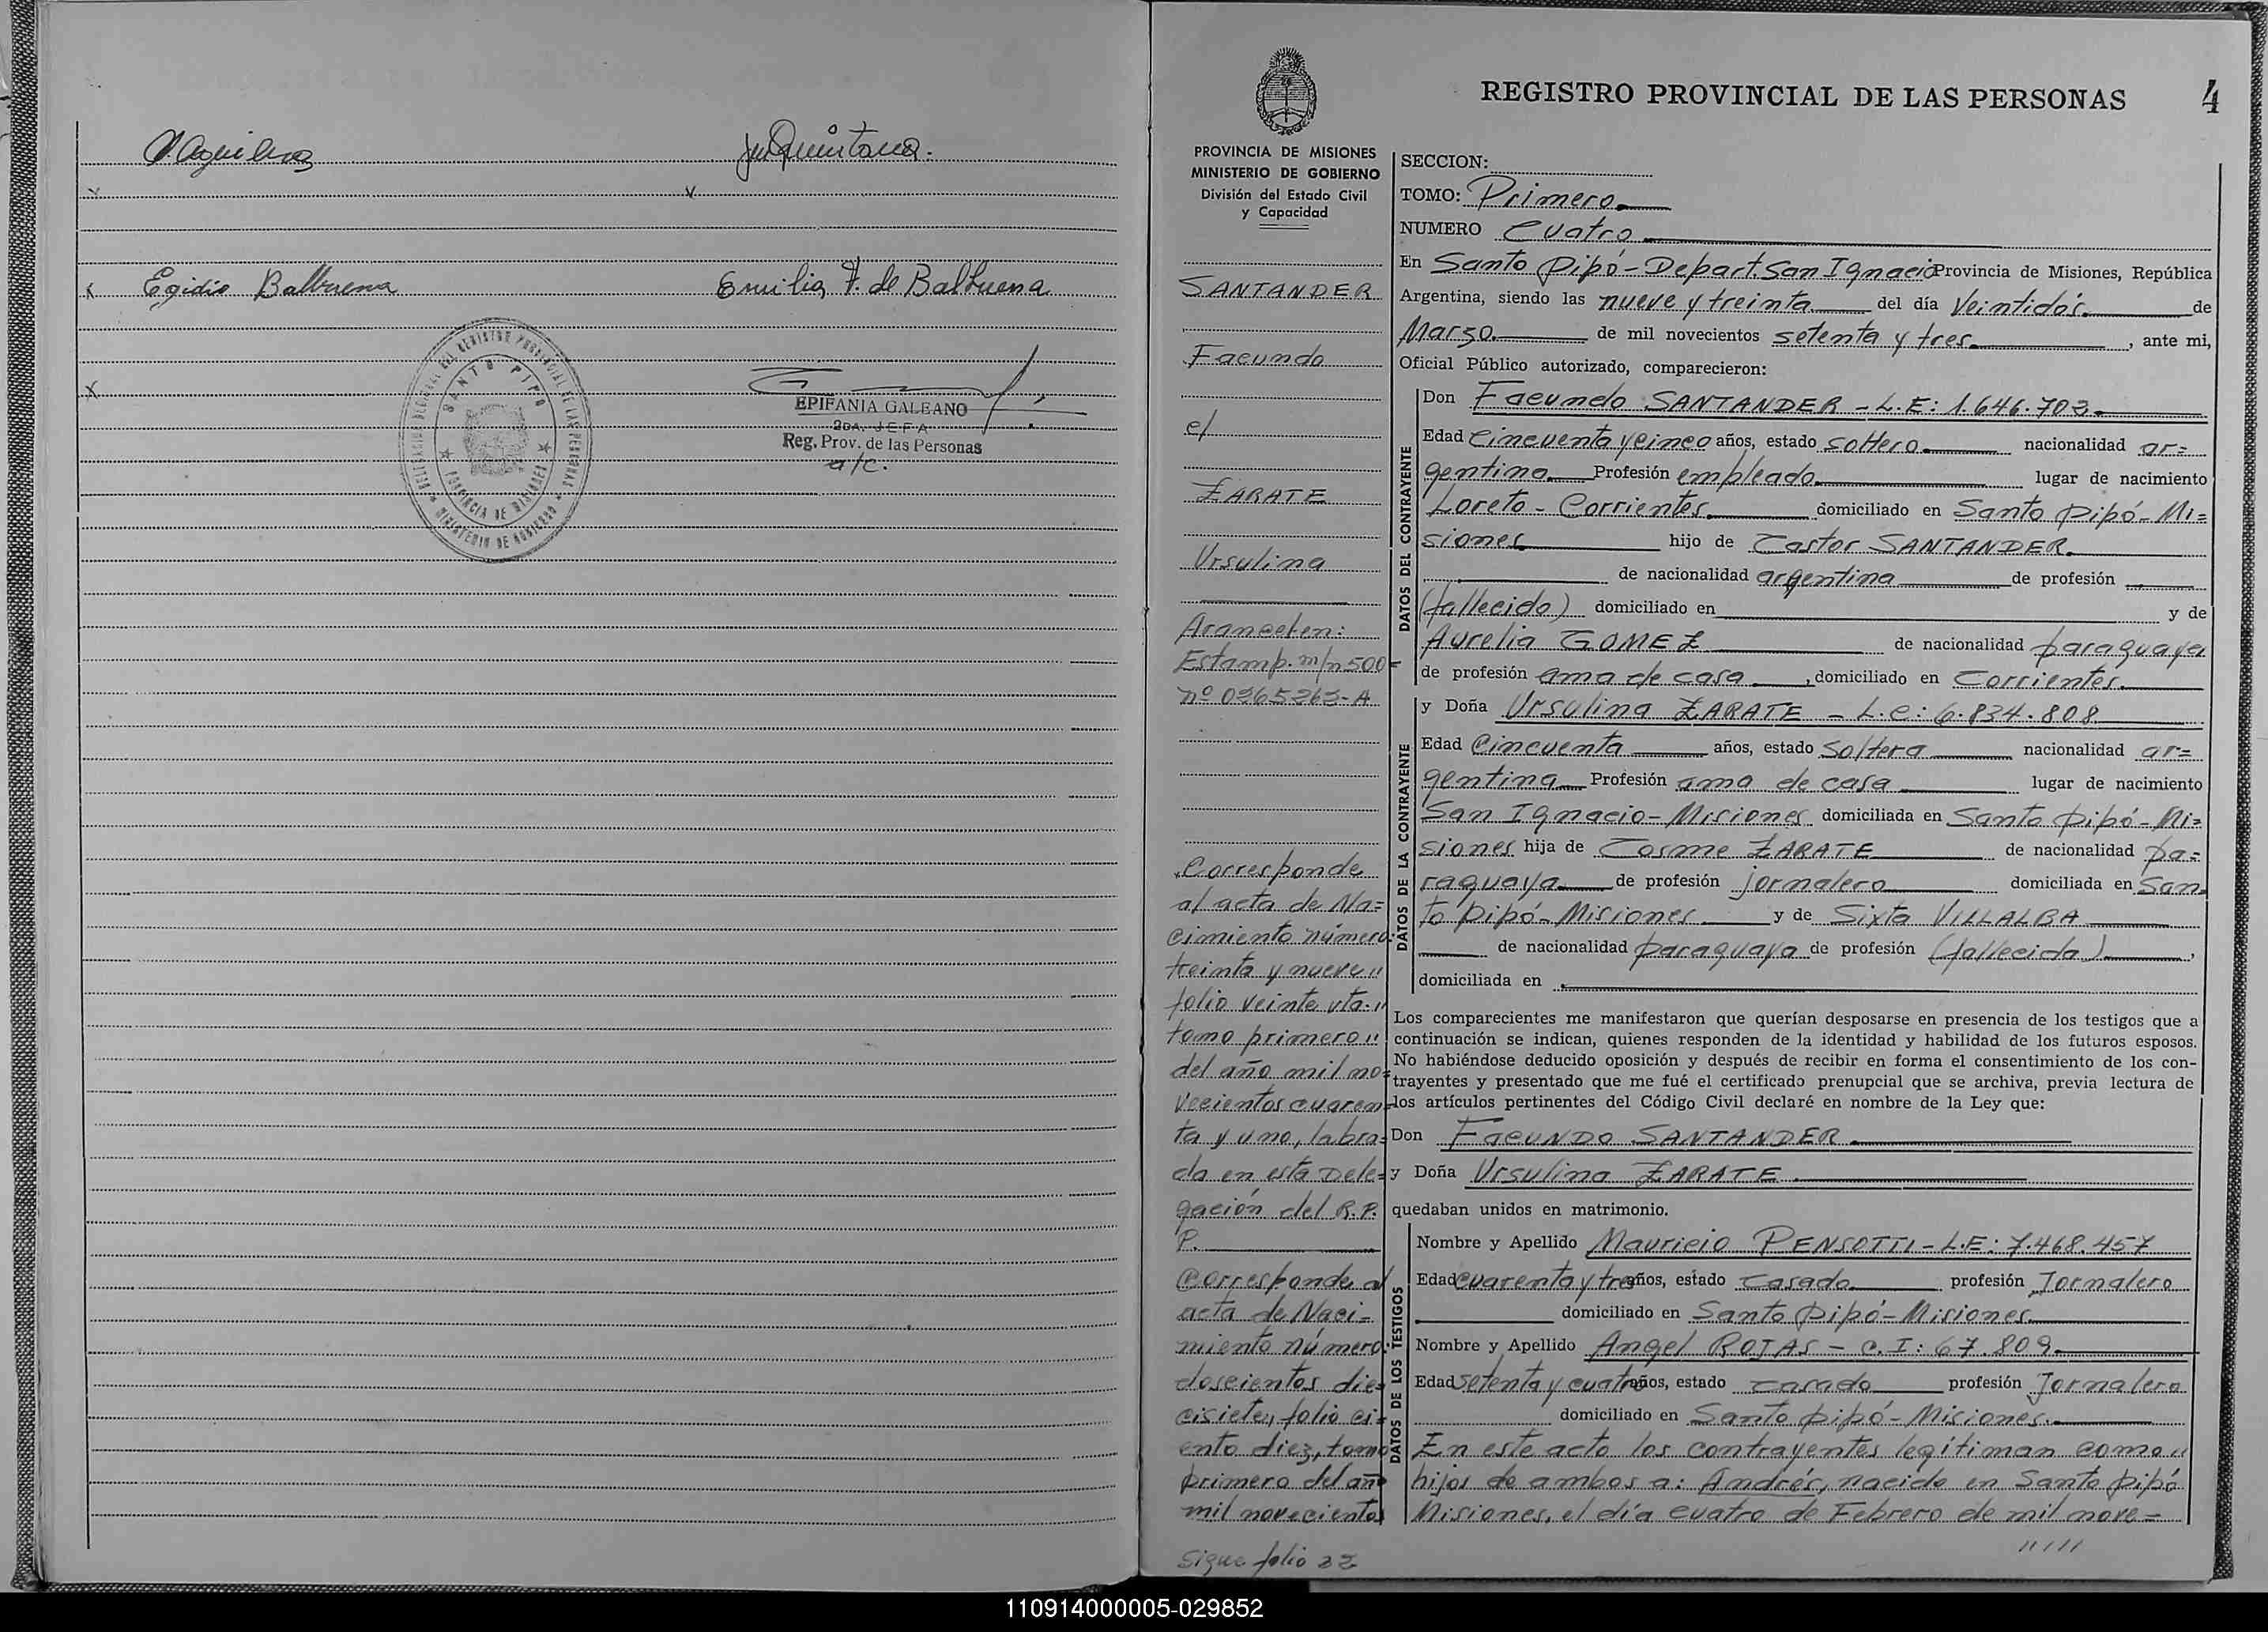 Aguilera
Quintana.
Egidio Balbuena
Emilia F. de Balbuena
SANTO PIPO
PROVINCIA DE MISIONES
MINISTERIO DE GOBIERNO
EPIFANIA GALEANO
2DA. JEFA
Reg. Prov. de las Personas
a/c.
REGISTRO PROVINCIAL DE LAS PERSONAS
4
PROVINCIA DE MISIONES
MINISTERIO DE GOBIERNO
División del Estado Civil
y Capacidad
SANTANDER
Facundo
c/
ZARATE
Ursulina
Arancelen:
Estamp. m/n 500
nº 0365263-A
Corresponde
al acta de Na=
cimiento número:
treinta y nueve,,
folio veinte vta.,,
tomo primero,,
del año mil no=
vecientos cuaren=
ta y uno, labra=
da en esta Dele=
gación del R.P.
P.
Corresponde al
acta de Naci=
miento número:
doscientos die=
cisiete, folio ci=
ento diez, tomo
primero del año
mil novecientos
Sigue folio 22
SECCION:
TOMO: Primero
NUMERO Cuatro
En Santo Pipó - Depart. San Ignacio Provincia de Misiones, República
Argentina, siendo las nueve y treinta del día Veintidós de
Marzo de mil novecientos setenta y tres, ante mi,
Oficial Público autorizado, comparecieron:
DATOS DEL CONTRAYENTE
Don Facundo SANTANDER - L.E: 1.646.703
Edad Cincuenta y cinco años, estado soltero nacionalidad ar=
gentina Profesión empleado lugar de nacimiento
Loreto - Corrientes domiciliado en Santo Pipó - Mi=
siones hijo de Castor SANTANDER
de nacionalidad argentina de profesión
(fallecido) domiciliado en y de
Aurelia GOMEZ de nacionalidad paraguaya
de profesión ama de casa, domiciliado en Corrientes
DATOS DE LA CONTRAYENTE
y Doña Ursulina ZARATE - L.C: 6.834.808
Edad Cincuenta años, estado Soltera nacionalidad ar=
gentina Profesión ama de casa lugar de nacimiento
San Ignacio - Misiones domiciliada en Santo Pipó - Mi=
siones hija de Cosme ZARATE de nacionalidad pa=
raguaya de profesión jornalero domiciliada en San=
to Pipó - Misiones y de Sixta VILLALBA
de nacionalidad paraguaya de profesión (fallecida),
domiciliada en
Los comparecientes me manifestaron que querían desposarse en presencia de los testigos que a
continuación se indican, quienes responden de la identidad y habilidad de los futuros esposos.
No habiéndose deducido oposición y después de recibir en forma el consentimiento de los con-
trayentes y presentado que me fué el certificado prenupcial que se archiva, previa lectura de
los artículos pertinentes del Código Civil declaré en nombre de la Ley que:
Don FACUNDO SANTANDER
y Doña Ursulina ZARATE
quedaban unidos en matrimonio.
DATOS DE LOS TESTIGOS
Nombre y Apellido Mauricio PENSOTTI - L.E: 7.468.457
Edad cuarenta y tres años, estado casado profesión Jornalero
domiciliado en Santo Pipó - Misiones
Nombre y Apellido Angel ROJAS - C.I: 67.809
Edad setenta y cuatro años, estado casado profesión Jornalero
domiciliado en Santo Pipó - Misiones.
En este acto los contrayentes legítiman como,,
hijos de ambos a: Andrés, nacido en Santo Pipó
Misiones, el día cuatro de Febrero de mil nove=
/////
110914000005-029852